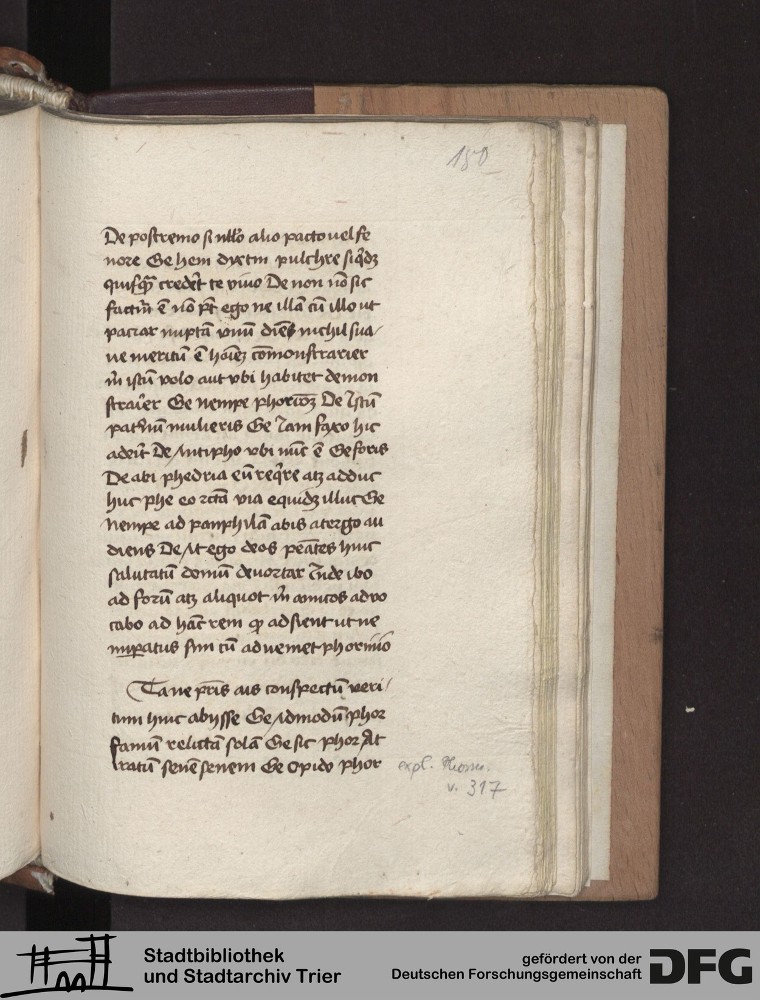 180
De postremo si nllo alio pacto vel fe
nore Ge hem dixtin pulchre siqdz
quisqm credet te viuo De non no sic
factu e no pt ego ne illa cu illo ut
paciar nupta vnu dies nichil sua
ue meritu e hoiez comonstrarier
m istu volo aut vbi habitet demon
strarier Ge nempe phorioz De Istu
patnu mulieris Ge Iam faxo hic
aderit De Antipho vbi nuc e Ge foris
De abi phedria eu reqre atz adduc
huc phe eo rcta via equidz illuc Ge
Nempe ad panphila abis atergo au
diens De At ego deos peates hinc
salutatu domu deuortar Inde ibo
ad foru atz aliquot m amicos aduo
cabo ad hac rem q adsient ut ne
imparatus sim cu adueniet phormio
Tane pris ais conspectu veri
tum hinc abysse Ge Admodu phor
famiu relicta sola Ge sic phor At
iratu sene senem Ge Opido phor
expl. Phorm.
v. 317
Stadtbibliothek
und Stadtarchiv Trier
gefördert von der
Deutschen Forschungsgemeinschaft
DFG